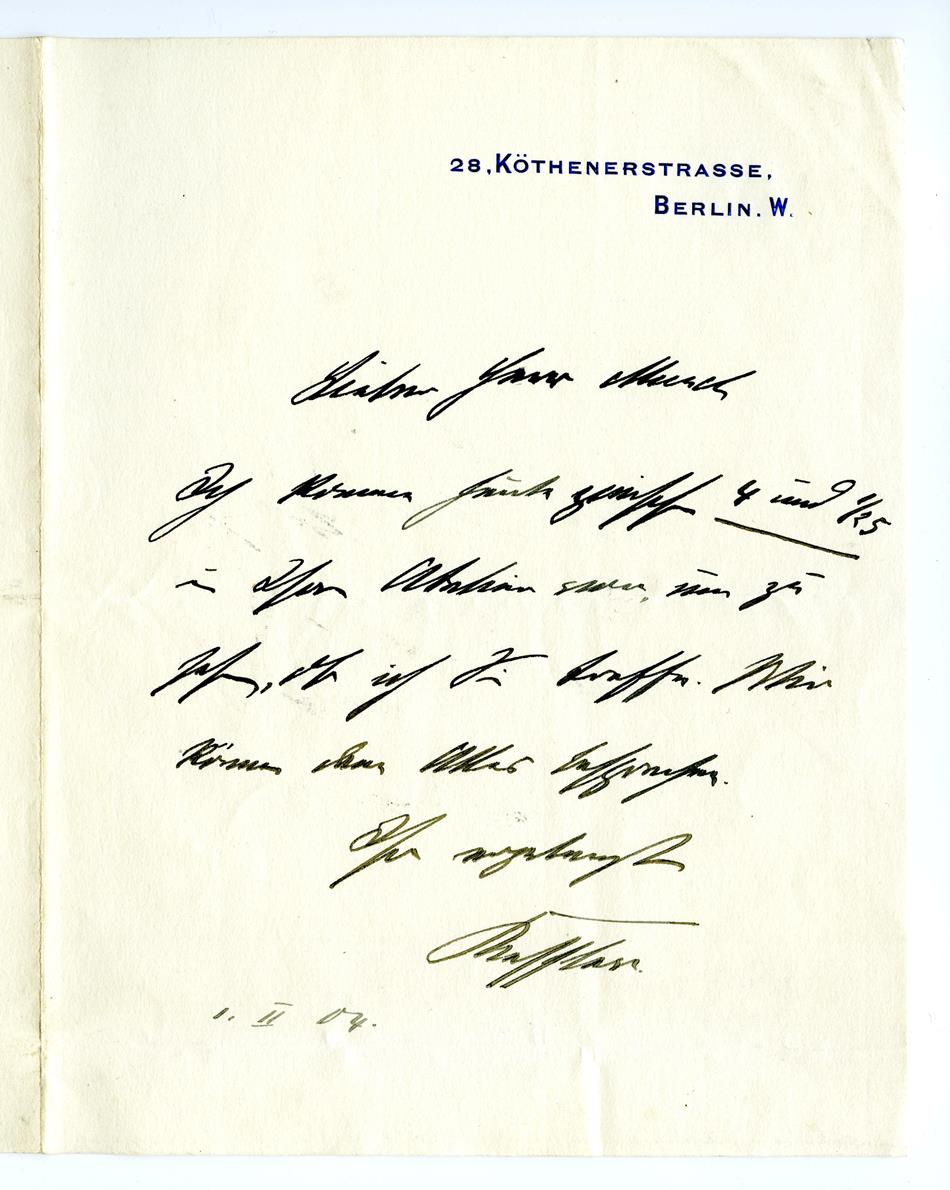 28, KÖTHENERSTRASSE,
BERLIN. W.
Lieber Herr Munch
Ich komme heute zwischen 4 und 1/2 5
in Ihrem Atelier vor, um zu
sehen, ob ich Sie treffe. Wir
können dann Alles besprechen.
Ihr ergebenst
Kessler.
1. II 04.